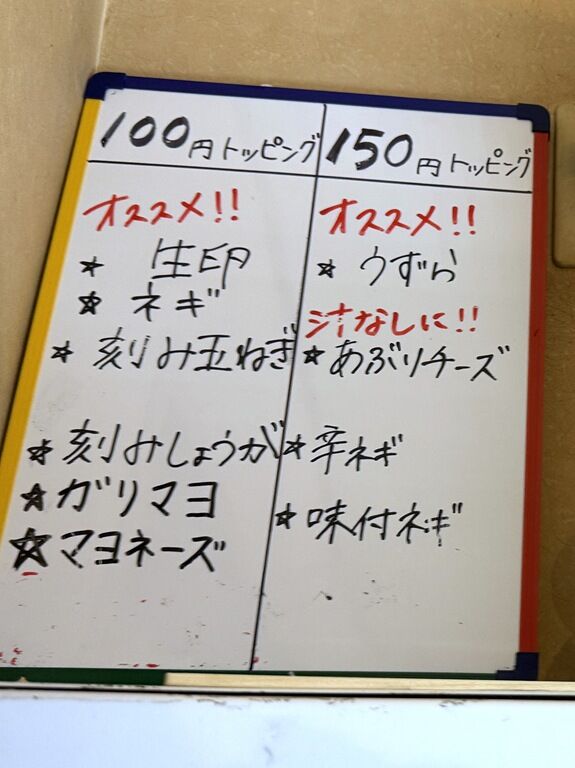 100円トッピング
オススメ!!
★ 生卵
★ ネギ
★ 刻み玉ねぎ
★ 刻みしょうが
★ ガリマヨ
★ マヨネーズ
150円トッピング
オススメ!!
★ うずら
汁なしに!!
★ あぶりチーズ
★ 辛ネギ
★ 味付ネギ